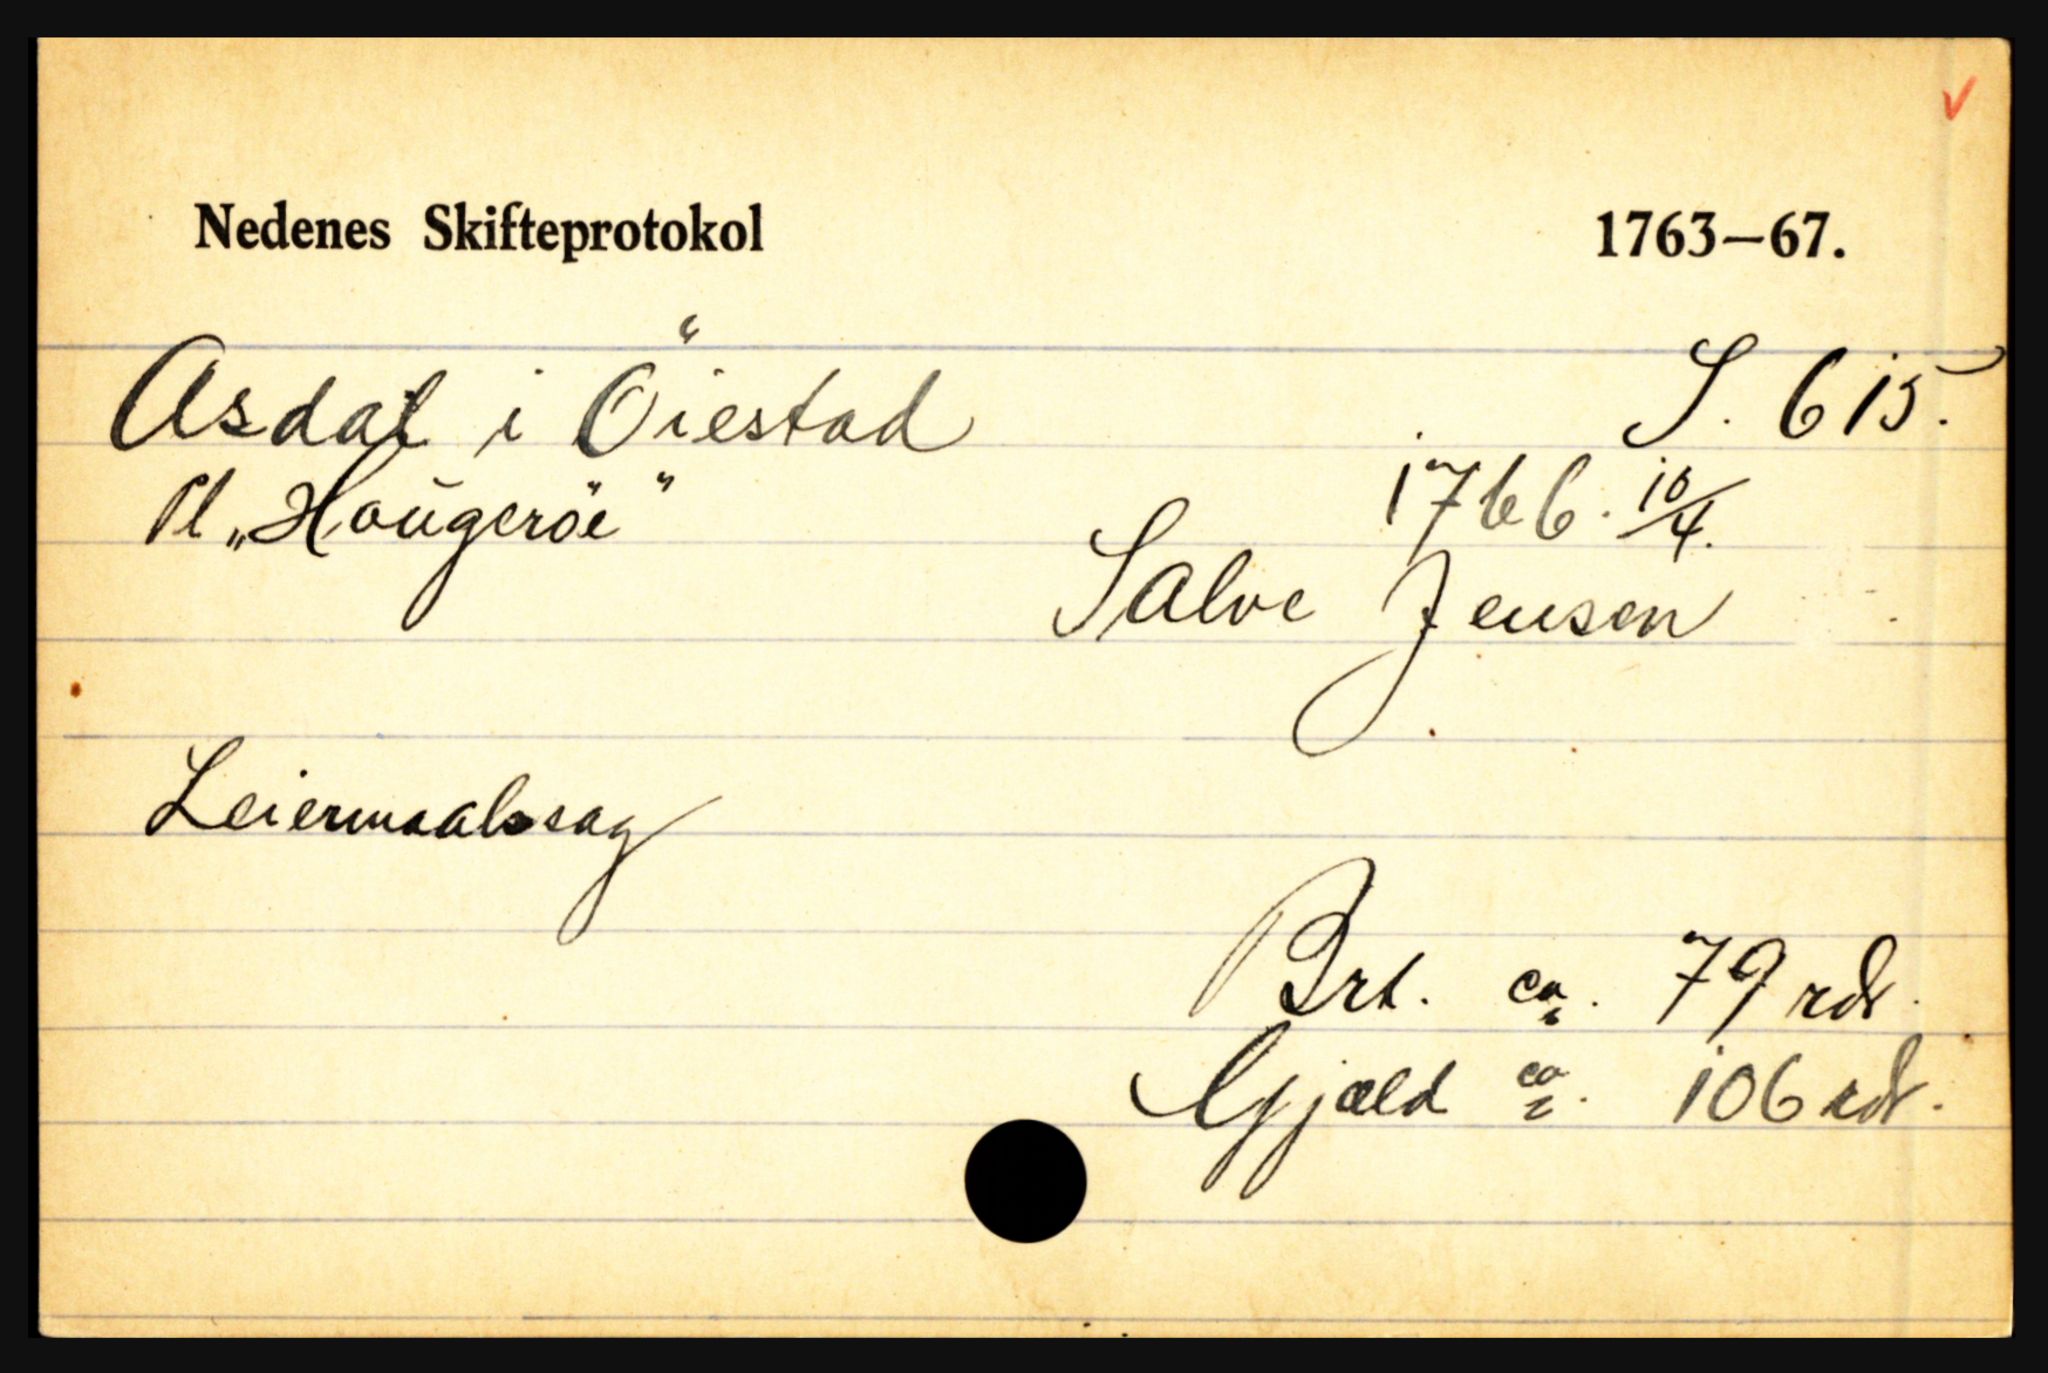 Nedenes Skifteprotokol 1763—67.
Asdal i Öiestad S. 615.
Pl „Hougeröe" 1766. 10/4.
Salve Jensen
Leiermaalssag
Brt. ca. 79 rdr.
Gjæld ca. 106 rdr.